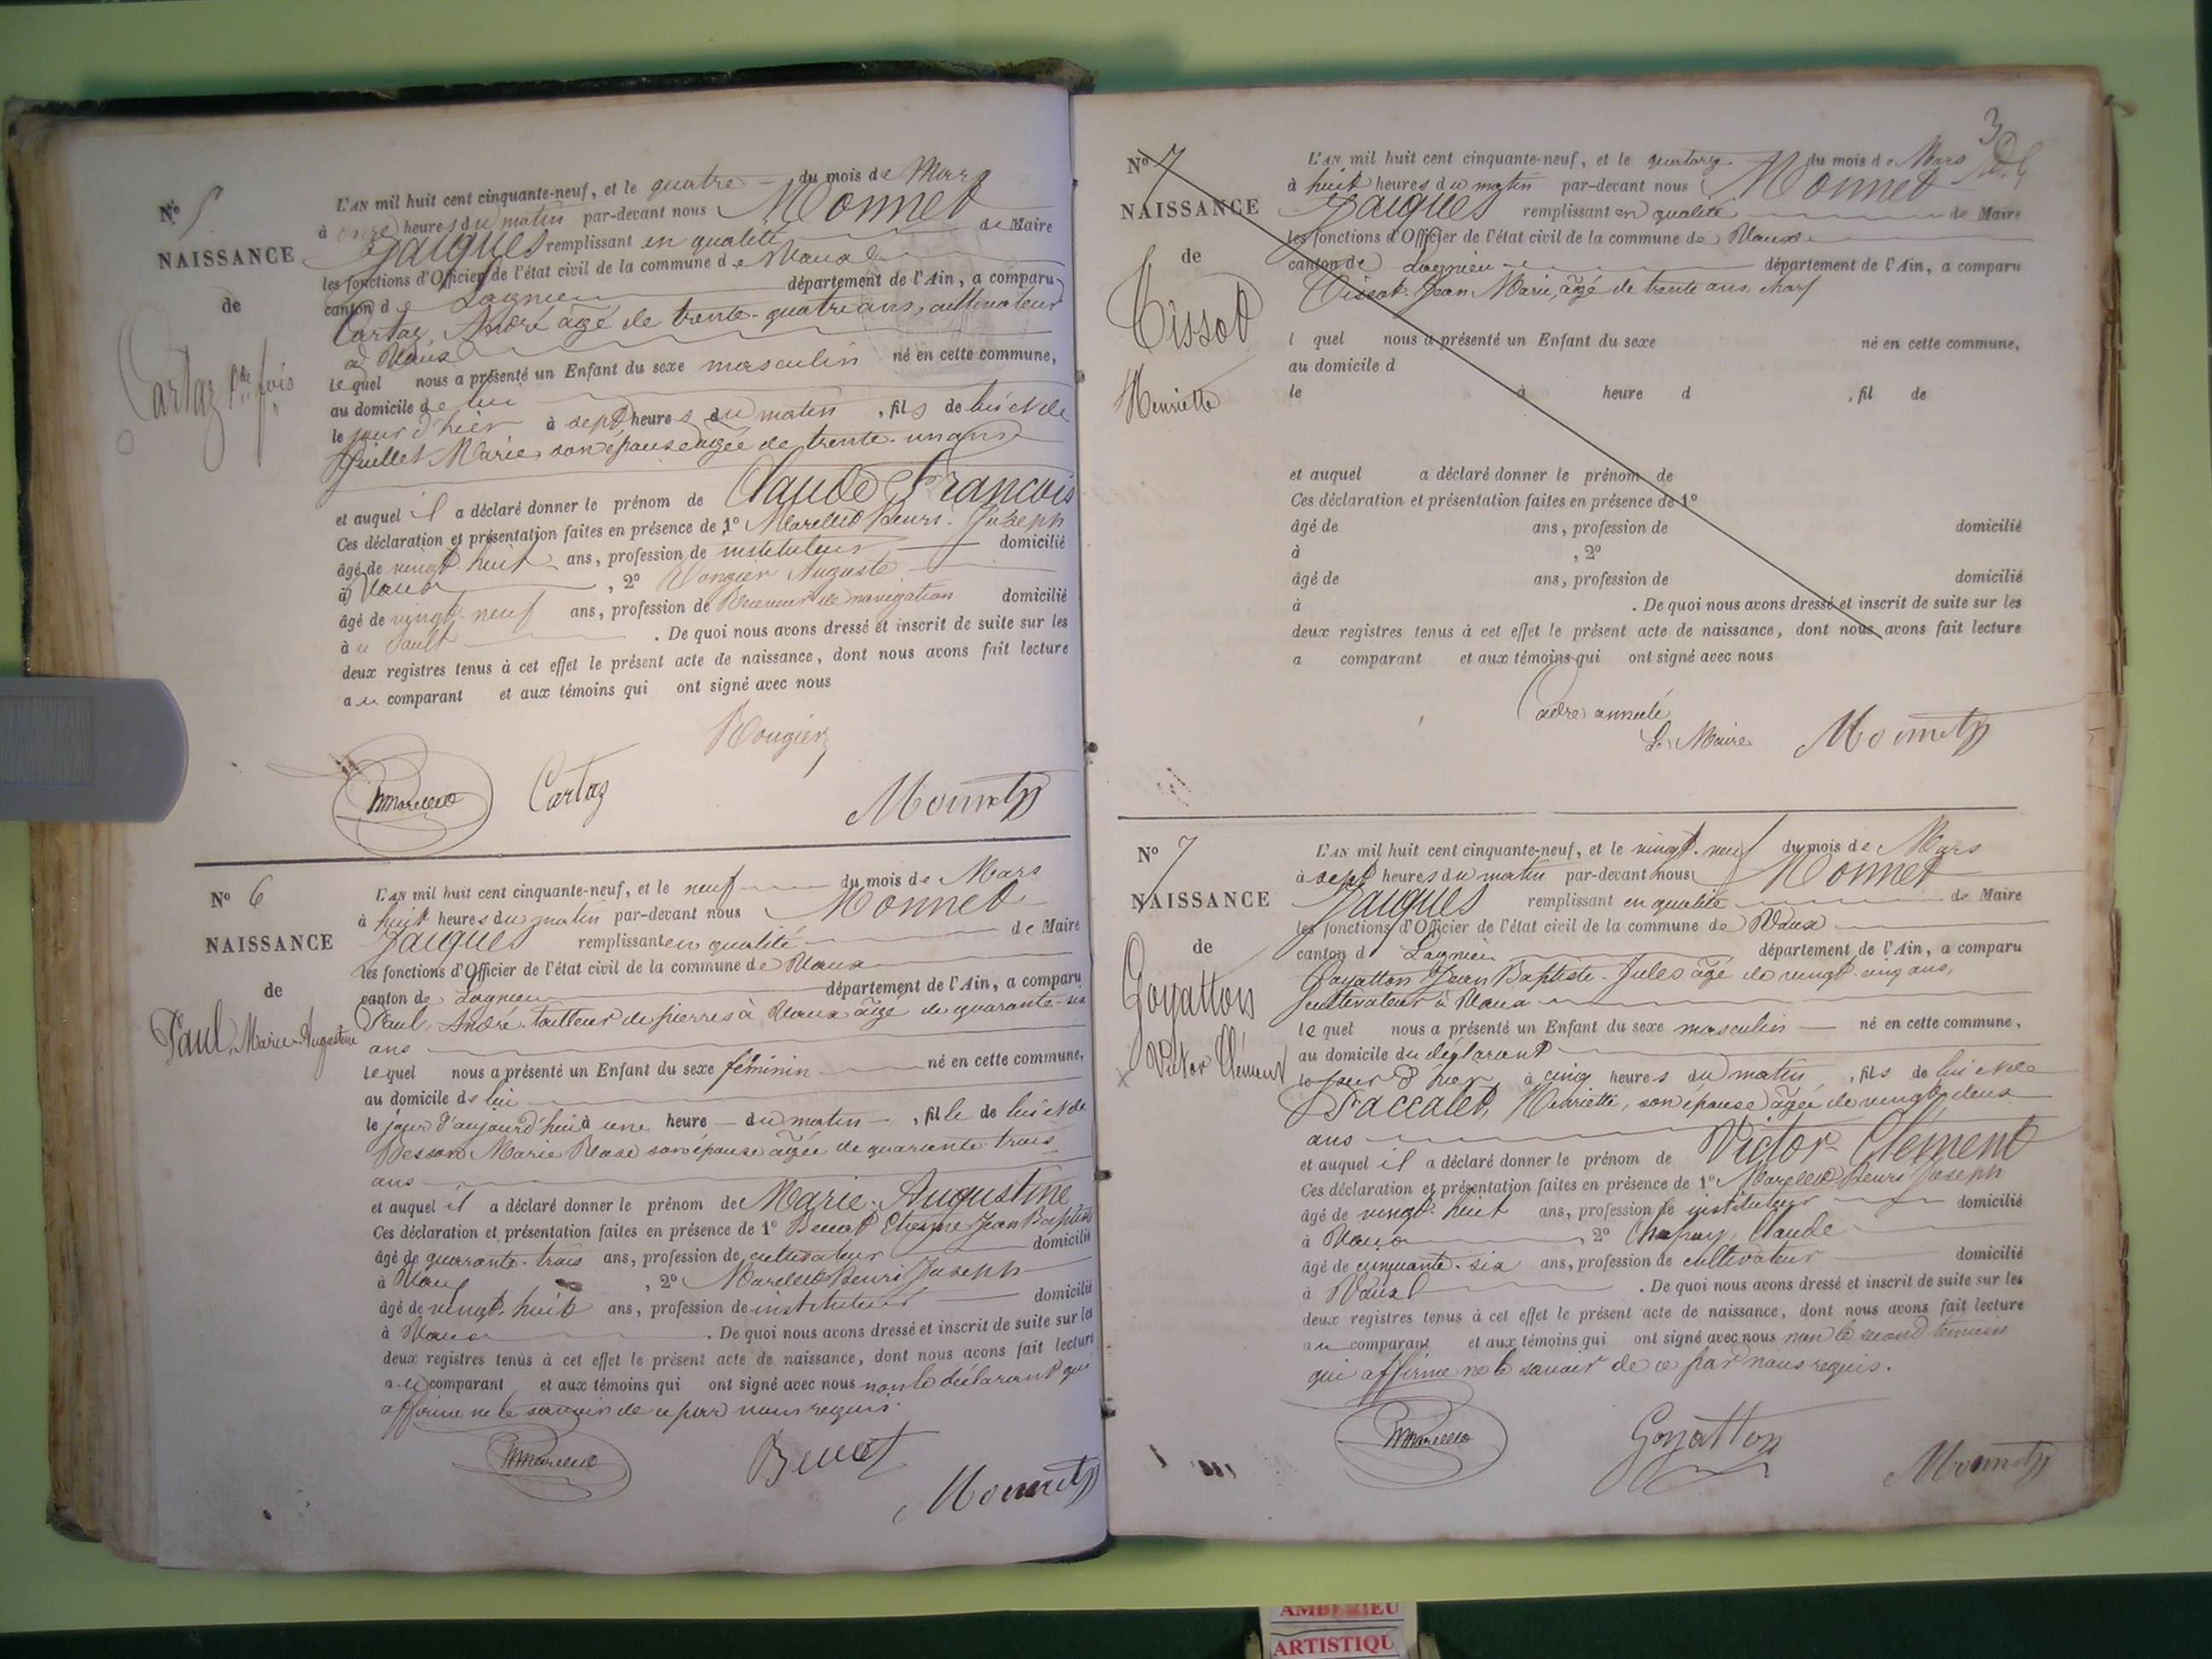 Nº 5
NAISSANCE
de
Cartaz Cde fois
L'AN mil huit cent cinquante-neuf, et le quatre du mois de Mars
à onze heures du matin par-devant nous Monnet
Jacques remplissant en qualité de Maire
les fonctions d'Officier de l'état civil de la commune de Vaux
canton de Lagnieu département de l'Ain, a comparu
Cartaz, André âgé de trente-quatre ans, cultivateur
à Vaux
lequel nous a présenté un Enfant du sexe masculin né en cette commune,
au domicile de lui
le jour d'hier à sept heures du matin, fils de lui et de
Juillet Marie, son épouse âgée de trente-un ans
et auquel il a déclaré donner le prénom de Claude François
Ces déclaration et présentation faites en présence de 1º Marellet Henri-Joseph
âgé de vingt-huit ans, profession de instituteur domicilié
à Vaux, 2º Rougier Auguste
âgé de vingt-neuf ans, profession de Receveur de navigation domicilié
à u Sault. De quoi nous avons dressé et inscrit de suite sur les
deux registres tenus à cet effet le présent acte de naissance, dont nous avons fait lecture
au comparant et aux témoins qui ont signé avec nous
Rougier
Cartaz
Monnet
Nº 6
NAISSANCE
de
Paul, Marie-Augustine
L'AN mil huit cent cinquante-neuf, et le neuf du mois de Mars
à huit heures du matin par-devant nous Monnet
Jacques remplissant en qualité de Maire
les fonctions d'Officier de l'état civil de la commune de Vaux
canton de Lagnieu département de l'Ain, a comparu
Paul, André, tailleur de pierres à Vaux âgé de quarante-six
ans
lequel nous a présenté un Enfant du sexe féminin né en cette commune,
au domicile de lui
le jour d'aujourd'hui à une heure du matin, fille de lui et de
Besson Marie Rose son épouse âgée de quarante trois
ans
et auquel il a déclaré donner le prénom de Marie-Augustine
Ces déclaration et présentation faites en présence de 1º Benoit Etienne Jean Baptiste
âgé de quarante-trois ans, profession de cultivateur domicilié
à Vaux, 2º Marellet Henri Joseph
âgé de vingt-huit ans, profession de instituteur domicilié
à Vaux. De quoi nous avons dressé et inscrit de suite sur les
deux registres tenus à cet effet le présent acte de naissance, dont nous avons fait lecture
au comparant et aux témoins qui ont signé avec nous non le déclarant qui
affirme ne le savoir de ce par nous requis.
Benoit
Monnet
3
Nº 7
NAISSANCE
de
Tissot
Henriette
L'AN mil huit cent cinquante-neuf, et le quatorze du mois de Mars
à huit heures du matin par-devant nous Monnet
Jacques remplissant en qualité de Maire
les fonctions d'Officier de l'état civil de la commune de Vaux
canton de Lagnieu département de l'Ain, a comparu
Tissot Jean Marie, âgé de trente ans, charf
l quel nous a présenté un Enfant du sexe né en cette commune,
au domicile d
le à heure d , fil de
et auquel a déclaré donner le prénom de
Ces déclaration et présentation faites en présence de 1º
âgé de ans, profession de domicilié
à , 2º
âgé de ans, profession de domicilié
à . De quoi nous avons dressé et inscrit de suite sur les
deux registres tenus à cet effet le présent acte de naissance, dont nous avons fait lecture
a comparant et aux témoins qui ont signé avec nous
acte annulé
Le Maire Monnet
Nº 7
NAISSANCE
de
Goyatton
Victor Clément
L'AN mil huit cent cinquante-neuf, et le vingt-neuf du mois de Mars
à sept heures du matin par-devant nous Monnet
Jacques remplissant en qualité de Maire
les fonctions d'Officier de l'état civil de la commune de Vaux
canton d Lagnieu département de l'Ain, a comparu
Goyatton Jean Baptiste-Jules âgé de vingt-cinq ans,
cultivateur à Vaux
lequel nous a présenté un Enfant du sexe masculin né en cette commune,
au domicile du déclarant
le jour d'hier à cinq heures du matin, fils de lui et de
Paccalet, Henriette, son épouse âgée de vingt-deux
ans
et auquel il a déclaré donner le prénom de Victor-Clément
Ces déclaration et présentation faites en présence de 1º Marellet Henri Joseph
âgé de vingt-huit ans, profession de instituteur domicilié
à Vaux 2º Chapuy Claude
âgé de cinquante-six ans, profession de cultivateur domicilié
à Vaux. De quoi nous avons dressé et inscrit de suite sur les
deux registres tenus à cet effet le présent acte de naissance, dont nous avons fait lecture
au comparant et aux témoins qui ont signé avec nous non le second témoin
qui affirme ne le savoir de ce par nous requis.
Goyatton
Monnet
AMBERIEU
ARTISTIQU